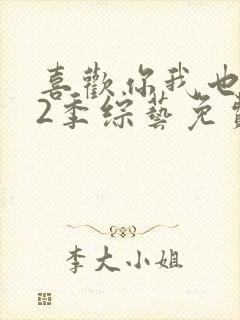 喜歡你我也
2季綜藝免費
李大小姐